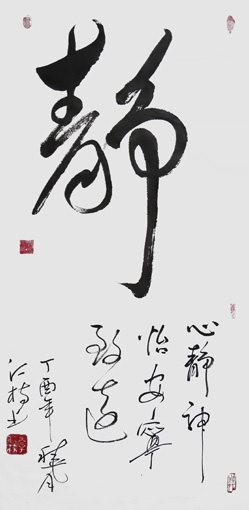 静
心静神
怡安宁
致远
丁酉年